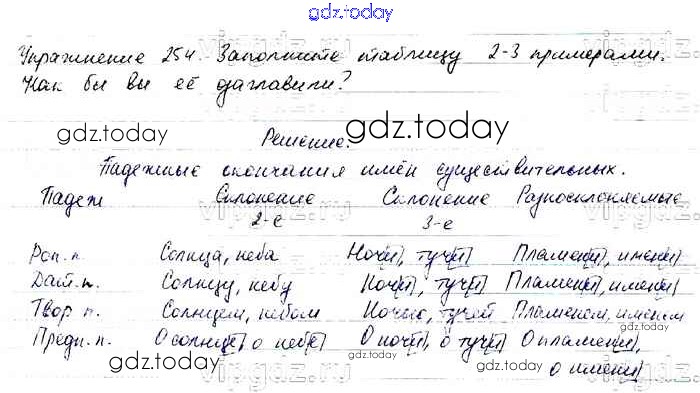 gdz.today
Упражнение 254. Заполните таблицу 2-3 примерами.
Как бы вы её озаглавили?
gdz.today gdz.today
Решение:
Падежные окончания имён существительных.
Падеж Склонение Склонение Разносклоняемые
2-е 3-е
Род. п. Солнца, неба Ночи, тучи Пламени, имени
Дат. п. Солнцу, небу Ночи, тучи Пламени, имени
Твор п. Солнцем, небом Ночью, тучей Пламенем, именем
Предл. п. О солнце, о небе О ночи, о тучи О пламени,
о имени
gdz.today gdz.today